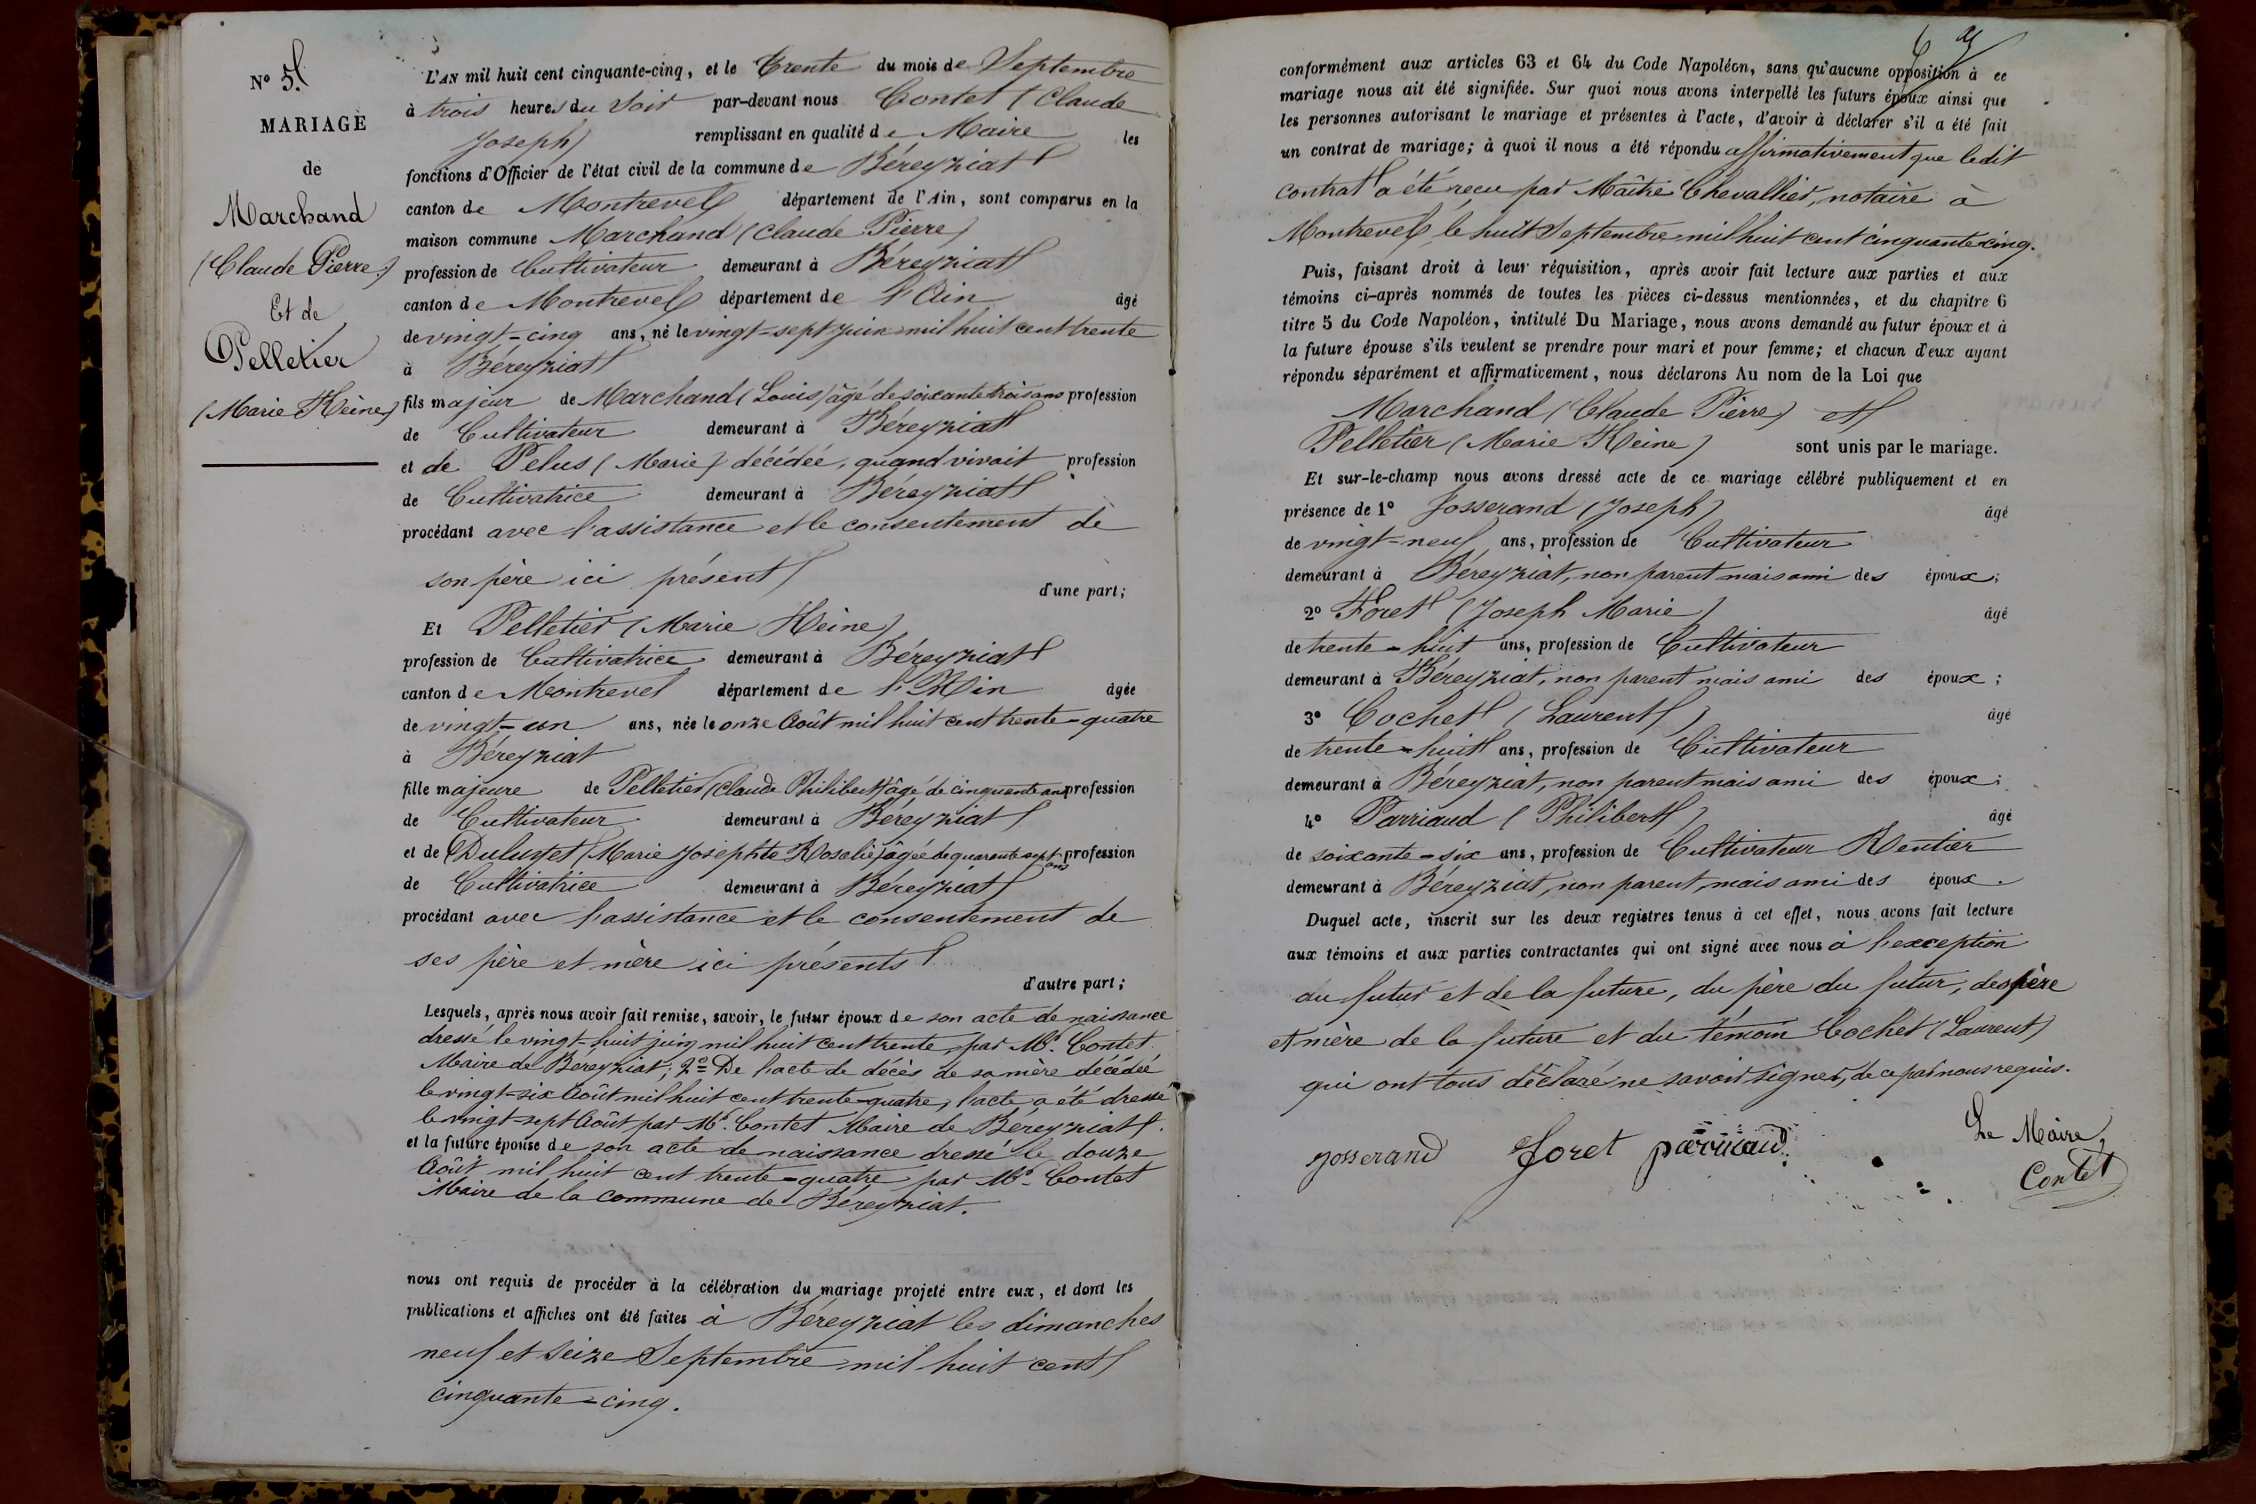 N° 5.
MARIAGE
de
Marchand
(Claude Pierre)
Et de
Pelletier
(Marie Reine)
L'AN mil huit cent cinquante-cinq, et le Trente du mois de Septembre
à trois heures du Soir par-devant nous Contet (Claude
Joseph) remplissant en qualité de Maire les
fonctions d'Officier de l'état civil de la commune de Béreyziat
canton de Montrevel département de l'Ain, sont comparus en la
maison commune Marchand (Claude Pierre)
profession de Cultivateur demeurant à Béreyziat
canton de Montrevel département de l'Ain âgé
de vingt-cinq ans, né le vingt-sept juin mil huit cent trente
à Béreyziat
fils majeur de Marchand (Louis) âgé de soixante trois ans profession
de Cultivateur demeurant à Béreyziat
et de Pelus (Marie) décédée, quand vivait profession
de Cultivatrice demeurant à Béreyziat
procédant avec l'assistance et le consentement de
son père ici présent
d'une part;
Et Pelletier (Marie Reine)
profession de Cultivatrice demeurant à Béreyziat
canton de Montrevel département de l'Ain âgée
de vingt-un ans, née le onze Août mil huit cent trente-quatre
à Béreyziat
fille majeure de Pelletier (Claude Philibert) âgé de cinquante ans profession
de Cultivateur demeurant à Béreyziat
et de (Marie Josephte Rosalie) âgée de quarante sept ans profession
de Cultivatrice demeurant à Béreyziat
procédant avec l'assistance et le consentement de
ses père et mère ici présents
d'autre part;
Lesquels, après nous avoir fait remise, savoir, le futur époux de son acte de naissance
dressé le vingt-huit juin mil huit cent trente par Mr. Contet
Maire de Béreyziat; 2° De l'acte de décès de sa mère décédée
le vingt-six Août mil huit cent trente-quatre, l'acte a été dressé
le vingt-sept Août par Mr. Contet Maire de Béreyziat.
et la future épouse de son acte de naissance dressé le douze
Août mil huit cent trente-quatre par Mr. Contet
Maire de la commune de Béreyziat.
nous ont requis de procéder à la célébration du mariage projeté entre eux, et dont les
publications et affiches ont été faites à Béreyziat les dimanches
neuf et seize Septembre mil huit cent
cinquante-cinq.
conformément aux articles 63 et 64 du Code Napoléon, sans qu'aucune opposition à ce
mariage nous ait été signifiée. Sur quoi nous avons interpellé les futurs époux ainsi que
les personnes autorisant le mariage et présentes à l'acte, d'avoir à déclarer s'il a été fait
un contrat de mariage; à quoi il nous a été répondu affirmativement que ledit
contrat a été reçu par Maître Chevallier, notaire à
Montrevel, le huit Septembre mil huit cent cinquante-cinq.
Puis, faisant droit à leur réquisition, après avoir fait lecture aux parties et aux
témoins ci-après nommés de toutes les pièces ci-dessus mentionnées, et du chapitre 6
titre 5 du Code Napoléon, intitulé Du Mariage, nous avons demandé au futur époux et à
la future épouse s'ils veulent se prendre pour mari et pour femme; et chacun d'eux ayant
répondu séparément et affirmativement, nous déclarons Au nom de la Loi que
Marchand (Claude Pierre) et
Pelletier (Marie Reine) sont unis par le mariage.
Et sur-le-champ nous avons dressé acte de ce mariage célébré publiquement et en
présence de 1° Josserand (Joseph) âgé
de vingt-neuf ans, profession de Cultivateur
demeurant à Béreyziat, non parent mais ami des époux;
2° Foret (Joseph Marie) âgé
de trente-huit ans, profession de Cultivateur
demeurant à Béreyziat, non parent mais ami des époux;
3° Cochet (Laurent) âgé
de trente-huit ans, profession de Cultivateur
demeurant à Béreyziat, non parent mais ami des époux;
4° Parriaud (Philibert) âgé
de soixante-six ans, profession de Cultivateur Rentier
demeurant à Béreyziat, non parent, mais ami des époux.
Duquel acte, inscrit sur les deux registres tenus à cet effet, nous avons fait lecture
aux témoins et aux parties contractantes qui ont signé avec nous à l'exception
du futur et de la future, du père du futur, des père
et mère de la future et du témoin Cochet (Laurent)
qui ont tous déclaré ne savoir signer, de ce par nous requis.
Le Maire,
josserand Foret parriaud Contet